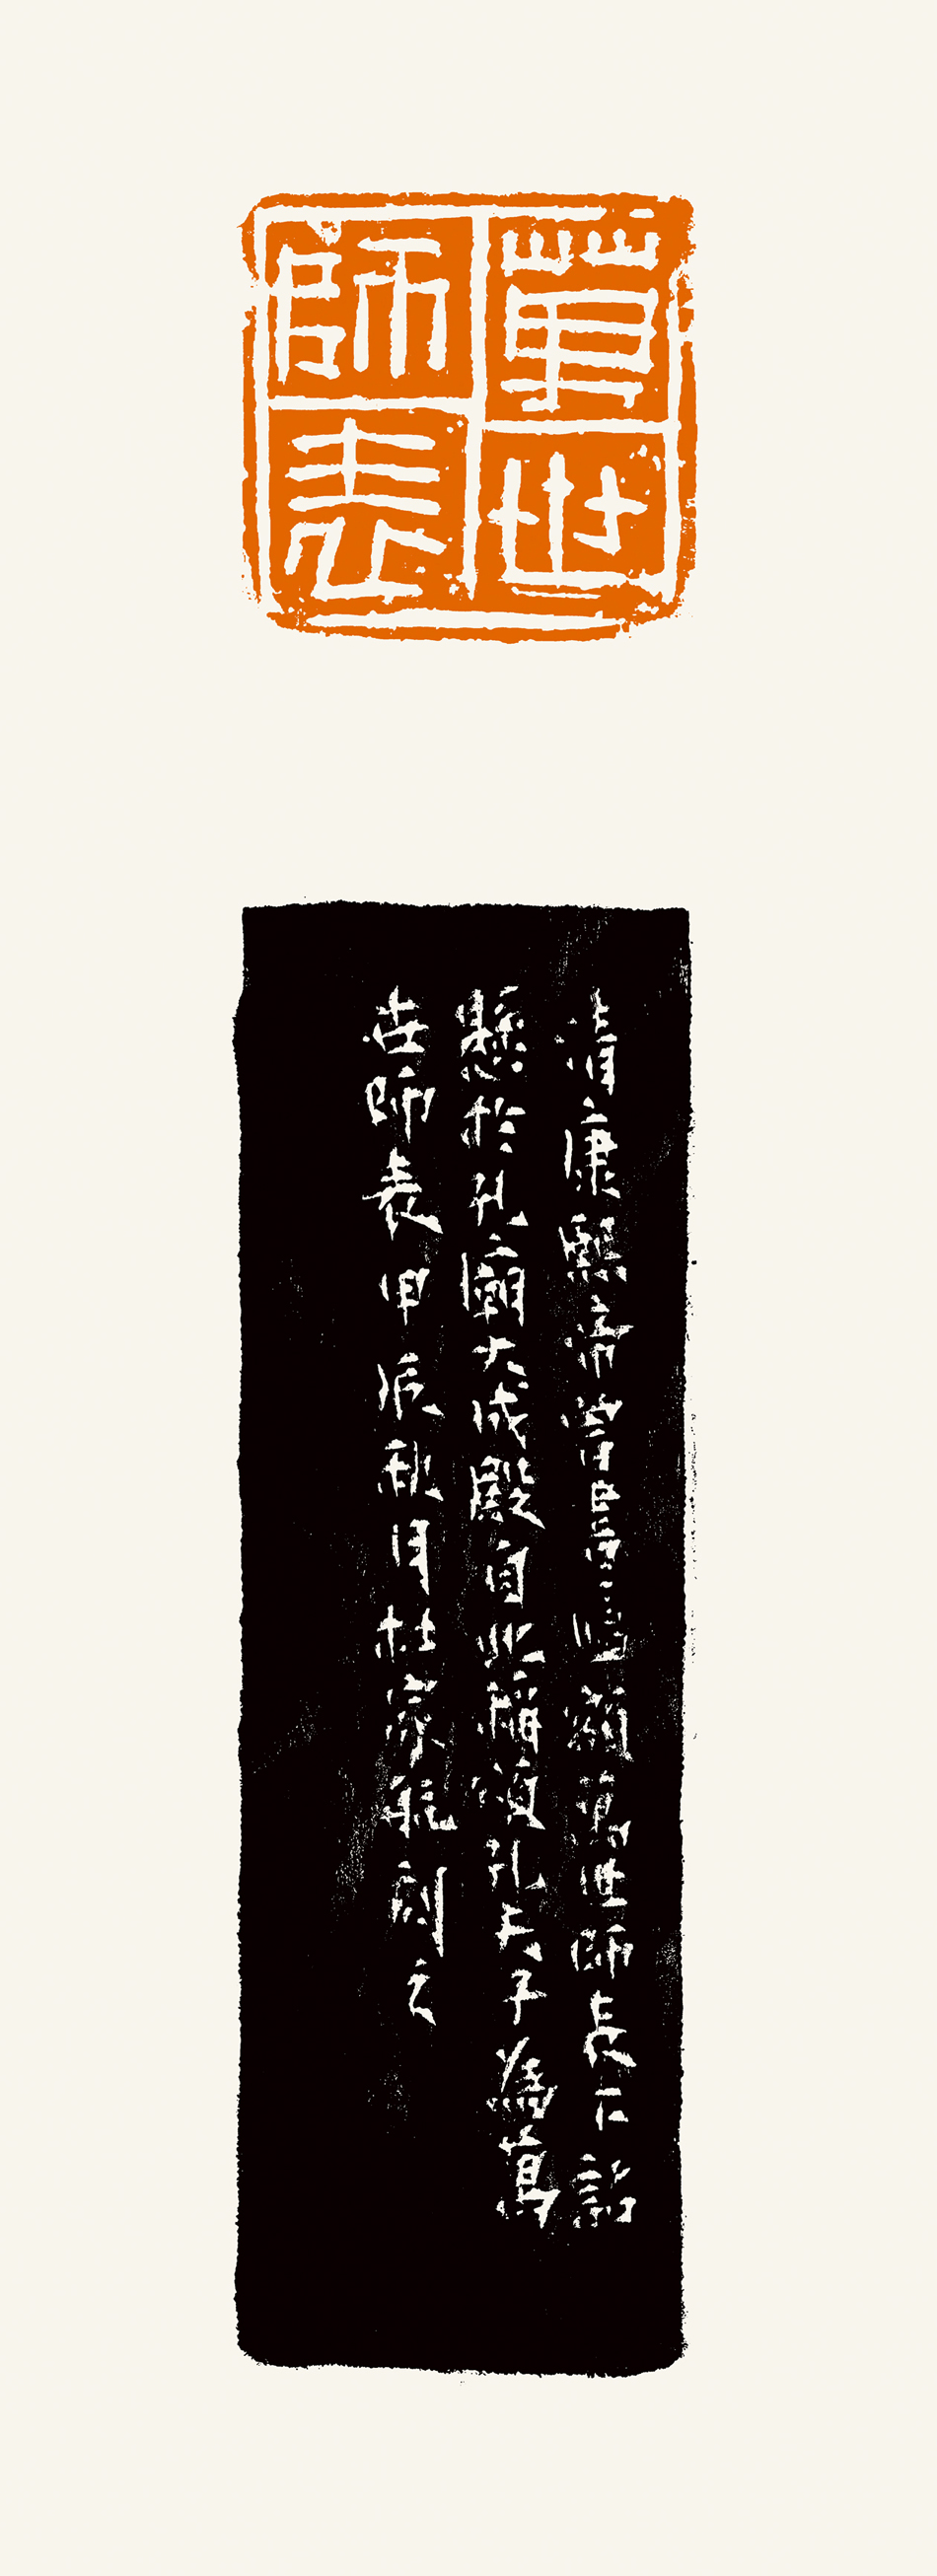 萬世
師表
清康熙帝曾額萬世師表下詔
懸於孔廟大成殿自此稱頌孔夫子為萬
世師表甲辰秋月杜家刻之